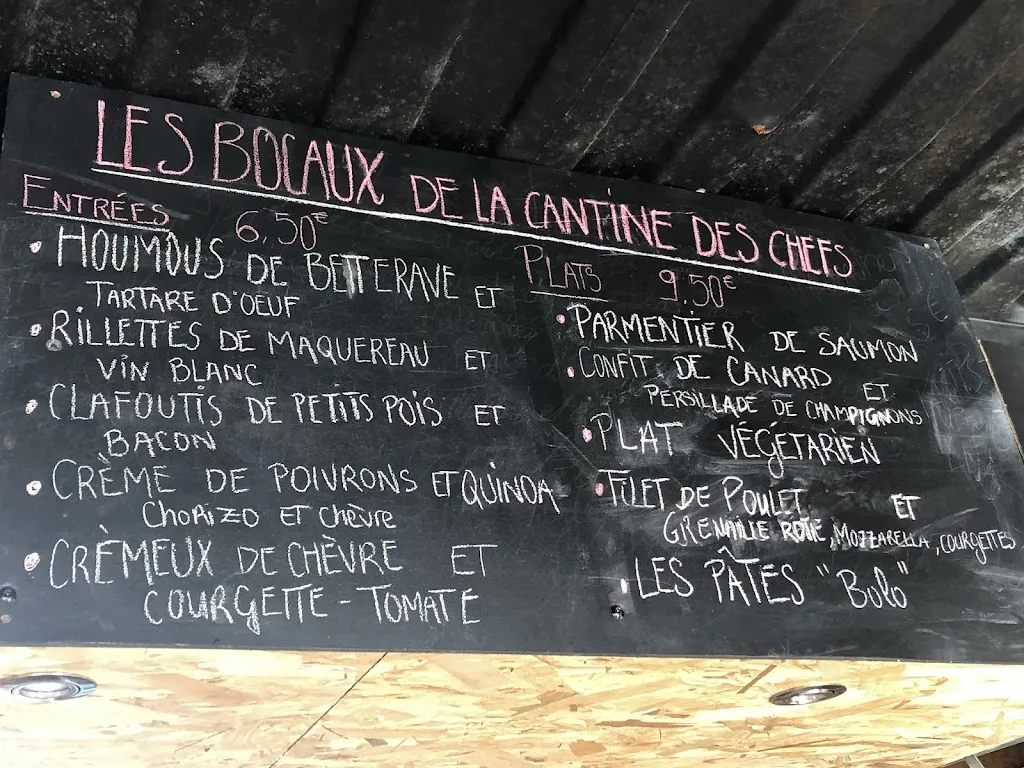 LES BOCAUX DE LA CANTINE DES CHEFS
ENTRÉES 6,50€
• HOUMOUS DE BETTERAVE ET
TARTARE D'OEUF
• RILLETTES DE MAQUEREAU ET
VIN BLANC
• CLAFOUTIS DE PETITS POIS ET
BACON
• CRÈME DE POIVRONS ET QUINOA
CHORIZO ET CHÈVRE
• CRÈMEUX DE CHÈVRE ET
COURGETTE - TOMATE
PLATS 9.50€
• PARMENTIER DE SAUMON
• CONFIT DE CANARD ET
PERSILLADE DE CHAMPIGNONS
• PLAT VÉGÉTARIEN
• FILET DE POULET ET
GRENAILLE ROTIE, MOZZARELLA, COURGETTES
• LES PÂTES "Bolo"